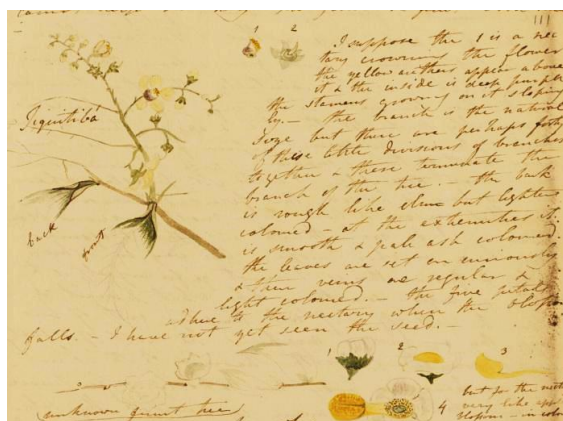 111
1
2
Jiquitibá
back
front
I suppose the 1 is a nec
tary crowning the flower
the yellow anthers appear above
it & the inside is deep purple
the stamens growing on it sloping
ly. — the branch is the natural
size but there are perhaps forty
of these little divisions of branches
together & these terminate the
branch of the tree. — the bark
is rough like elm but lighter
coloured — at the extremities it
is smooth & pale ash coloured.
the leaves are set on curiously
& their veins are regular &
light coloured. — the five petals
adhere to the nectary when the blossom
falls. — I have not yet seen the seed. —
1
2
3
4
(unknown great tree)
but for the
very like
blossom — in